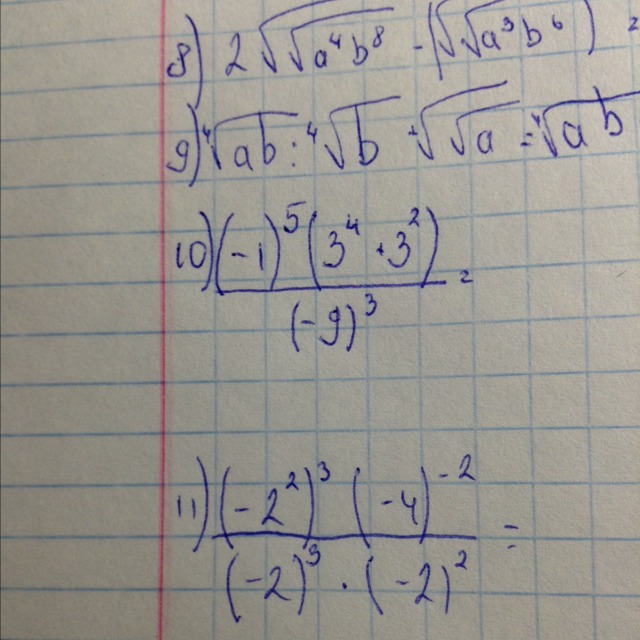 8) 2√√a⁴b⁸ - (√√a³b⁶) =
9) ⁴√ab : ⁴√b - √√a = ⁴√ab
10) (-1)⁵(3⁴ · 3²)
(-9)³ =
11) (-2²)³ (-4)⁻²
(-2)³ · (-2)² =